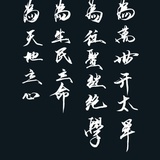 為天地立心
為生民立命
為往聖继绝學
為萬世开太平